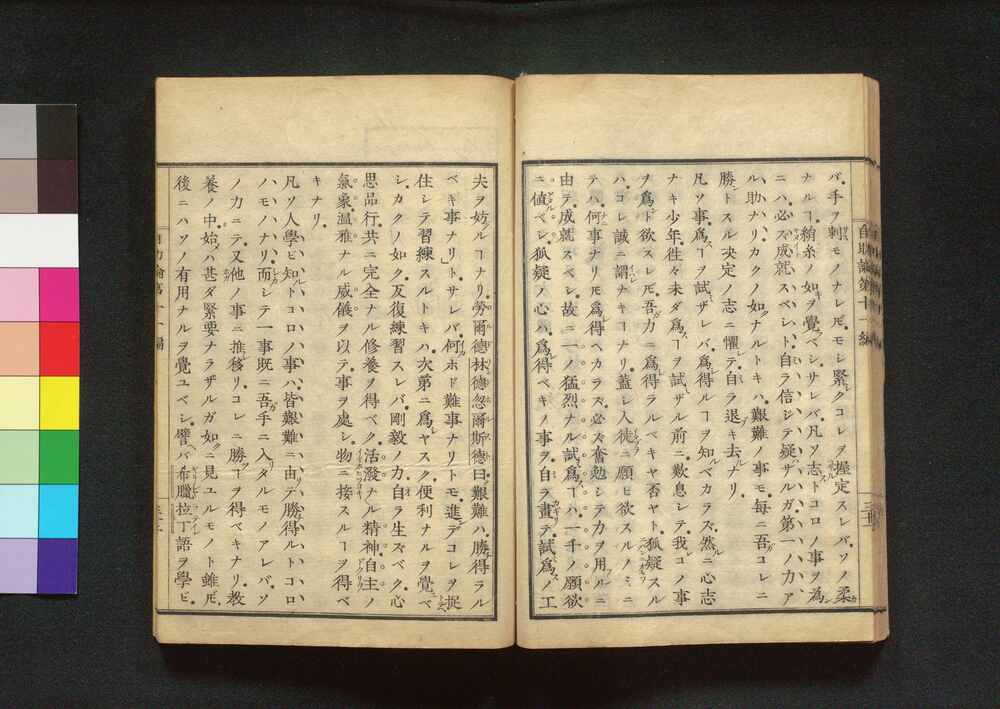 バ手ヲ刺モノナレ𪜈モシ緊クコレヲ握定スレバソノ柔
ナルヿ絹糸ノ如ヲ覺ベシサレバ凡ソ志トコロノ事ヲ為
ニハ必ズ成就スベシト自ラ信シテ疑ハザルガ第一ノ力ア
ル助ナリカクノ如クナルトキハ艱難ノ事モ毎ニ吾コレニ
勝ントスル决定ノ志ニ懼レテ自ラ退キ去ナリ
凡ソ事爲ヿヲ試ザレバ爲得ルヿヲ知ベカラズ然ルニ心志
ナキ少年徃々未ダ爲スヿヲ試ザル前ニ歎息シテ我コノ事
ヲ爲ント欲スレ𪜈吾力ニ爲得ラルベキヤ否ヤト狐疑スル
ハコレ誠ニ謂ナキヿナリ蓋シ人徒ニ願ヒ欲スルノミニ
テハ何事ナリ𪜈爲得ベカラズ必ズ奮勉シテ力ヲ用ルニ
由テ成就スベシ故ニ一ノ猛烈ナル試爲ヿハ一千ノ願欲
ニ値ベシ狐疑ノ心ハ爲得ベキノ事ヲ自ラ畫テ試爲ノ工
夫ヲ妨ルヿナリ勞爾德林德忽爾斯德曰艱難ハ勝得ラル
ベキ事ナリトサレバ何ホド難事ナリトモ進デコレヲ捉
住シテ習練スルトキハ次第ニ爲ヤスク便利ナルヲ覺ベ
シカクノ如ク反復練習スレバ剛毅ノ力自ラ生ズベク心
思品行共ニ完全ナル修養ヲ得ベク活潑ナル精神自主ノ
氣象溫雅ナル威儀ヲ以テ事ヲ處シ物ニ接スルヿヲ得ベ
キナリ
凡ソ人學ビ知トコロノ事ハ皆艱難ニ由テ勝得ルトコロ
ハモノナリ而シテ一事既ニ吾手ニ入タルモノアレバソ
ノ力ニテ又他ノ事ニ推移リコレニ勝ヿヲ得ベキナリ教
養ノ中始ハ甚ダ緊要ナラザルガ如クニ見ユルモノト雖𪜈
後ニハソノ有用ナルヲ覺ユベシ譬バ希臘拉丁語ヲ學ビ